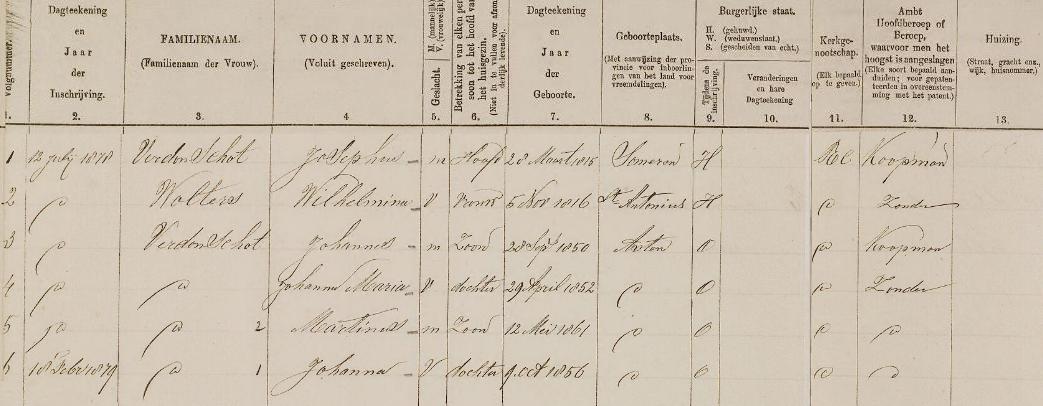 Volgnummer.
Dagteekening en Jaar der Inschrijving.
FAMILIENAAM. (Familienaam der Vrouw).
VOORNAMEN. (Voluit geschreven).
Geslacht. M. (mannelijk) V. (vrouwelijk)
Betrekking van elken persoon tot het hoofd van het huisgezin.
Dagteekening en Jaar der Geboorte.
Geboorteplaats. (Met aanwijzing der provincie voor inboorlingen van het land voor vreemdelingen).
Burgerlijke staat.
H. (gehuwd.)
W. (weduwenstaat.)
S. (gescheiden van echt.)
Tijdens de inschrijving.
Veranderingen en hare Dagteekening
Kerkgenootschap. (Elk bepaald op te geven.)
Ambt Hoofdberoep of Beroep, waarvoor men het hoogst is aangeslagen
(Elke soort bepaald aanduiden; voor gepatenteerden in overeenstemming met het patent.)
Huizing. (Straat, gracht enz., wijk, huisnummer.)
1. 2. 3. 4 5. 6. 7. 8. 9. 10. 11. 12. 13.
1 12 July 1878 VerdonSchot Josephus m Hoofd 28 Maart 1815 Someren H RC Koopman
2 " Wolters Wilhelmina V Vrouw 5 Nov 1816 St Antonius H " Zonder
3 " VerdonSchot Johannes m Zoon 28 Sept 1850 Asten O " Koopman
4 " " Johanna Maria V dochter 29 April 1852 " O " Zonder
5 " " 2 Martinus m Zoon 12 Mei 1861 " O " "
6 18 Febr 1879 " 1 Johanna V dochter 9 oct 1856 " O " "